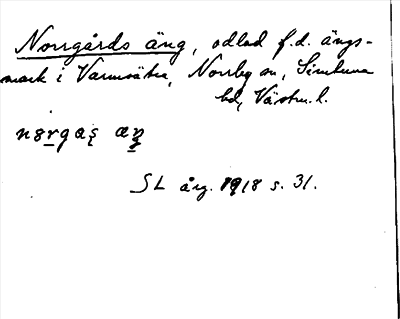 Norrgårds äng, odlad f.d. ängs-
mark i Varmsätra, Norrby sn, Simtuna
hd, Västm. l.
nørgas æŋ
SL årg. 1918 s. 31.